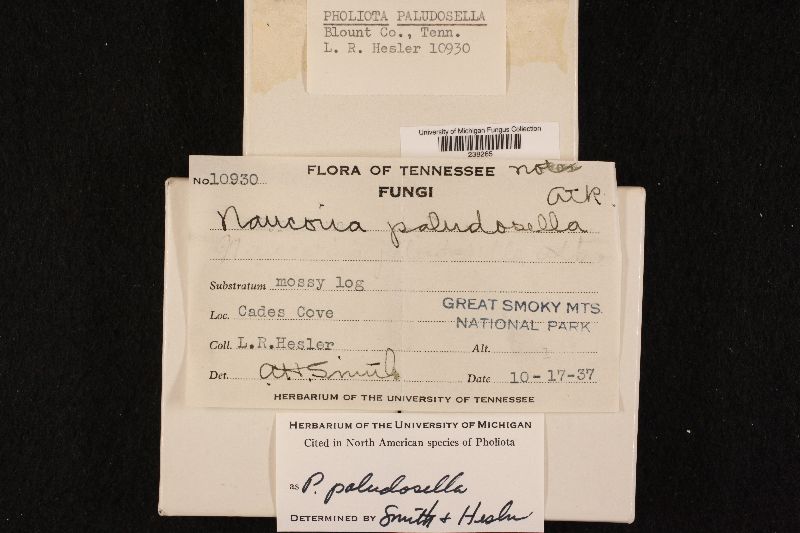 PHOLIOTA PALUDOSELLA
Blount Co., Tenn.
L. R. Hesler 10930
University of Michigan Fungus Collection
FLORA OF TENNESSEE notes
No. 10930
FUNGI
Atk
Naucoria paludosella
Substratum mossy log
Loc. Cades Cove
GREAT SMOKY MTS.
NATIONAL PARK
Coll. L.R.Hesler
Alt.
Det. A.H.Smith
Date 10-17-37
HERBARIUM OF THE UNIVERSITY OF TENNESSEE
HERBARIUM OF THE UNIVERSITY OF MICHIGAN
Cited in North American species of Pholiota
as P. paludosella
DETERMINED BY Smith & Hesler